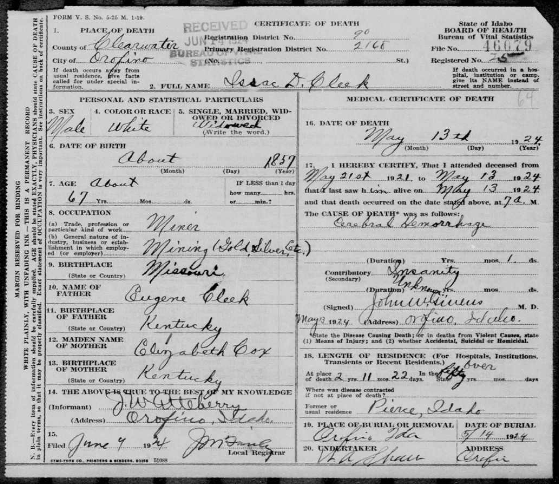 FORM V. S. No. 5-25 M. 1-19.
CERTIFICATE OF DEATH
State of Idaho
BOARD OF HEALTH
Bureau of Vital Statistics
RECEIVED
JUN 14 1924
BUREAU OF VITAL
STATISTICS
1. PLACE OF DEATH
County of Clearwater
City of Orofino
If death occurs away from usual residence, give facts called for under special information.
Registration District No. 90
Primary Registration District No. 2160
(No. St.)
File No. 46679
Registered No. 25
If death occurred in a hospital, institution or camp, give its NAME instead of street and number.
2. FULL NAME Isaac D. Cleek
PERSONAL AND STATISTICAL PARTICULARS
3. SEX Male
4. COLOR OR RACE White
5. SINGLE, MARRIED, WIDOWED OR DIVORCED Widowed
(Write the word.)
6. DATE OF BIRTH
About 1857
(Month) (Day) (Year)
7. AGE About
67 Yrs. mos. ds.
IF LESS than 1 day
how many hrs.
or min.?
8. OCCUPATION
(a) Trade, profession or particular kind of work Miner
(b) General nature of industry, business or establishment in which employed (or employer) Mining (Gold, Silver, Etc.)
9. BIRTHPLACE Missouri
(State or Country)
10. NAME OF FATHER Eugene Cleek
11. BIRTHPLACE OF FATHER Kentucky
(State or Country)
12. MAIDEN NAME OF MOTHER Elizabeth Cox
13. BIRTHPLACE OF MOTHER Kentucky
(State or Country)
14. THE ABOVE IS TRUE TO THE BEST OF MY KNOWLEDGE
(Informant) J. W. Atteberry
(Address) Orofino, Idaho
15.
Filed June 9 1924
Local Registrar
MEDICAL CERTIFICATE OF DEATH
16. DATE OF DEATH
May 13th 1924
(Month) (Day) (Year)
17. I HEREBY CERTIFY, That I attended deceased from
May 21st 1921 to May 13 1924
that I last saw him alive on May 13 1924
and that death occurred on the date stated above, at 7 a M.
The CAUSE OF DEATH* was as follows:
Cerebral Hemorrhage
(Duration) Yrs. mos. 1 ds.
Contributory Insanity
(Secondary)
(Duration) Unknown
(Signed) John W. Givens M. D.
1924 (Address) Orofino, Idaho.
*State the Disease Causing Death; or in deaths from Violent Causes, state (1) Means of Injury; and (2) whether Accidental, Suicidal or Homicidal.
18. LENGTH OF RESIDENCE (For Hospitals, Institutions, Transients or Recent Residents.)
At place 2 yrs 11 mos. 22 ds. In the State over Fifty yrs. mos. ds.
Where was disease contracted
if not at place of death?
Former or usual residence Pierce, Idaho
19. PLACE OF BURIAL OR REMOVAL Orofino Ida
DATE OF BURIAL 5/14 1924
20. UNDERTAKER
ADDRESS Orofino
MARGIN RESERVED FOR BINDING
WRITE PLAINLY, WITH UNFADING INK—THIS IS A PERMANENT RECORD